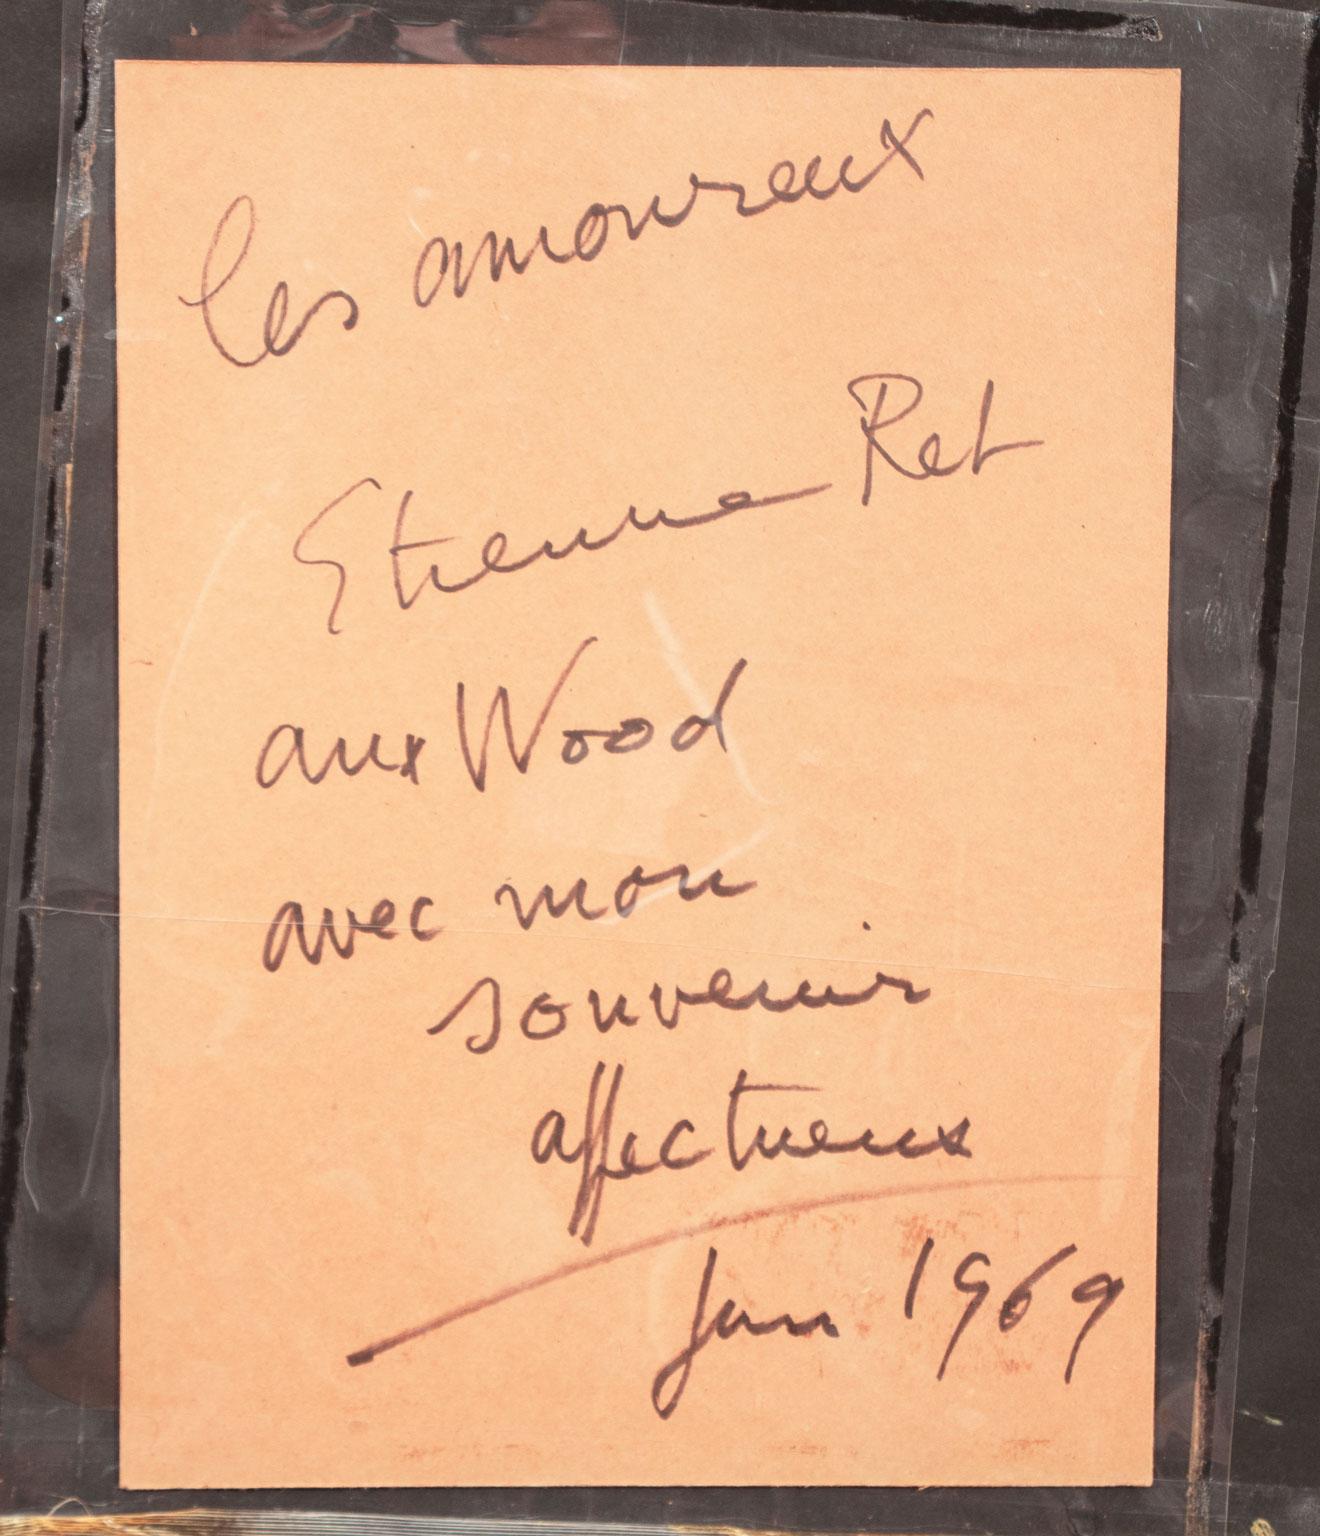 les amoureux
Etienne Ret
aux Wood
avec mon
souvenir
affectueux
Juin 1969